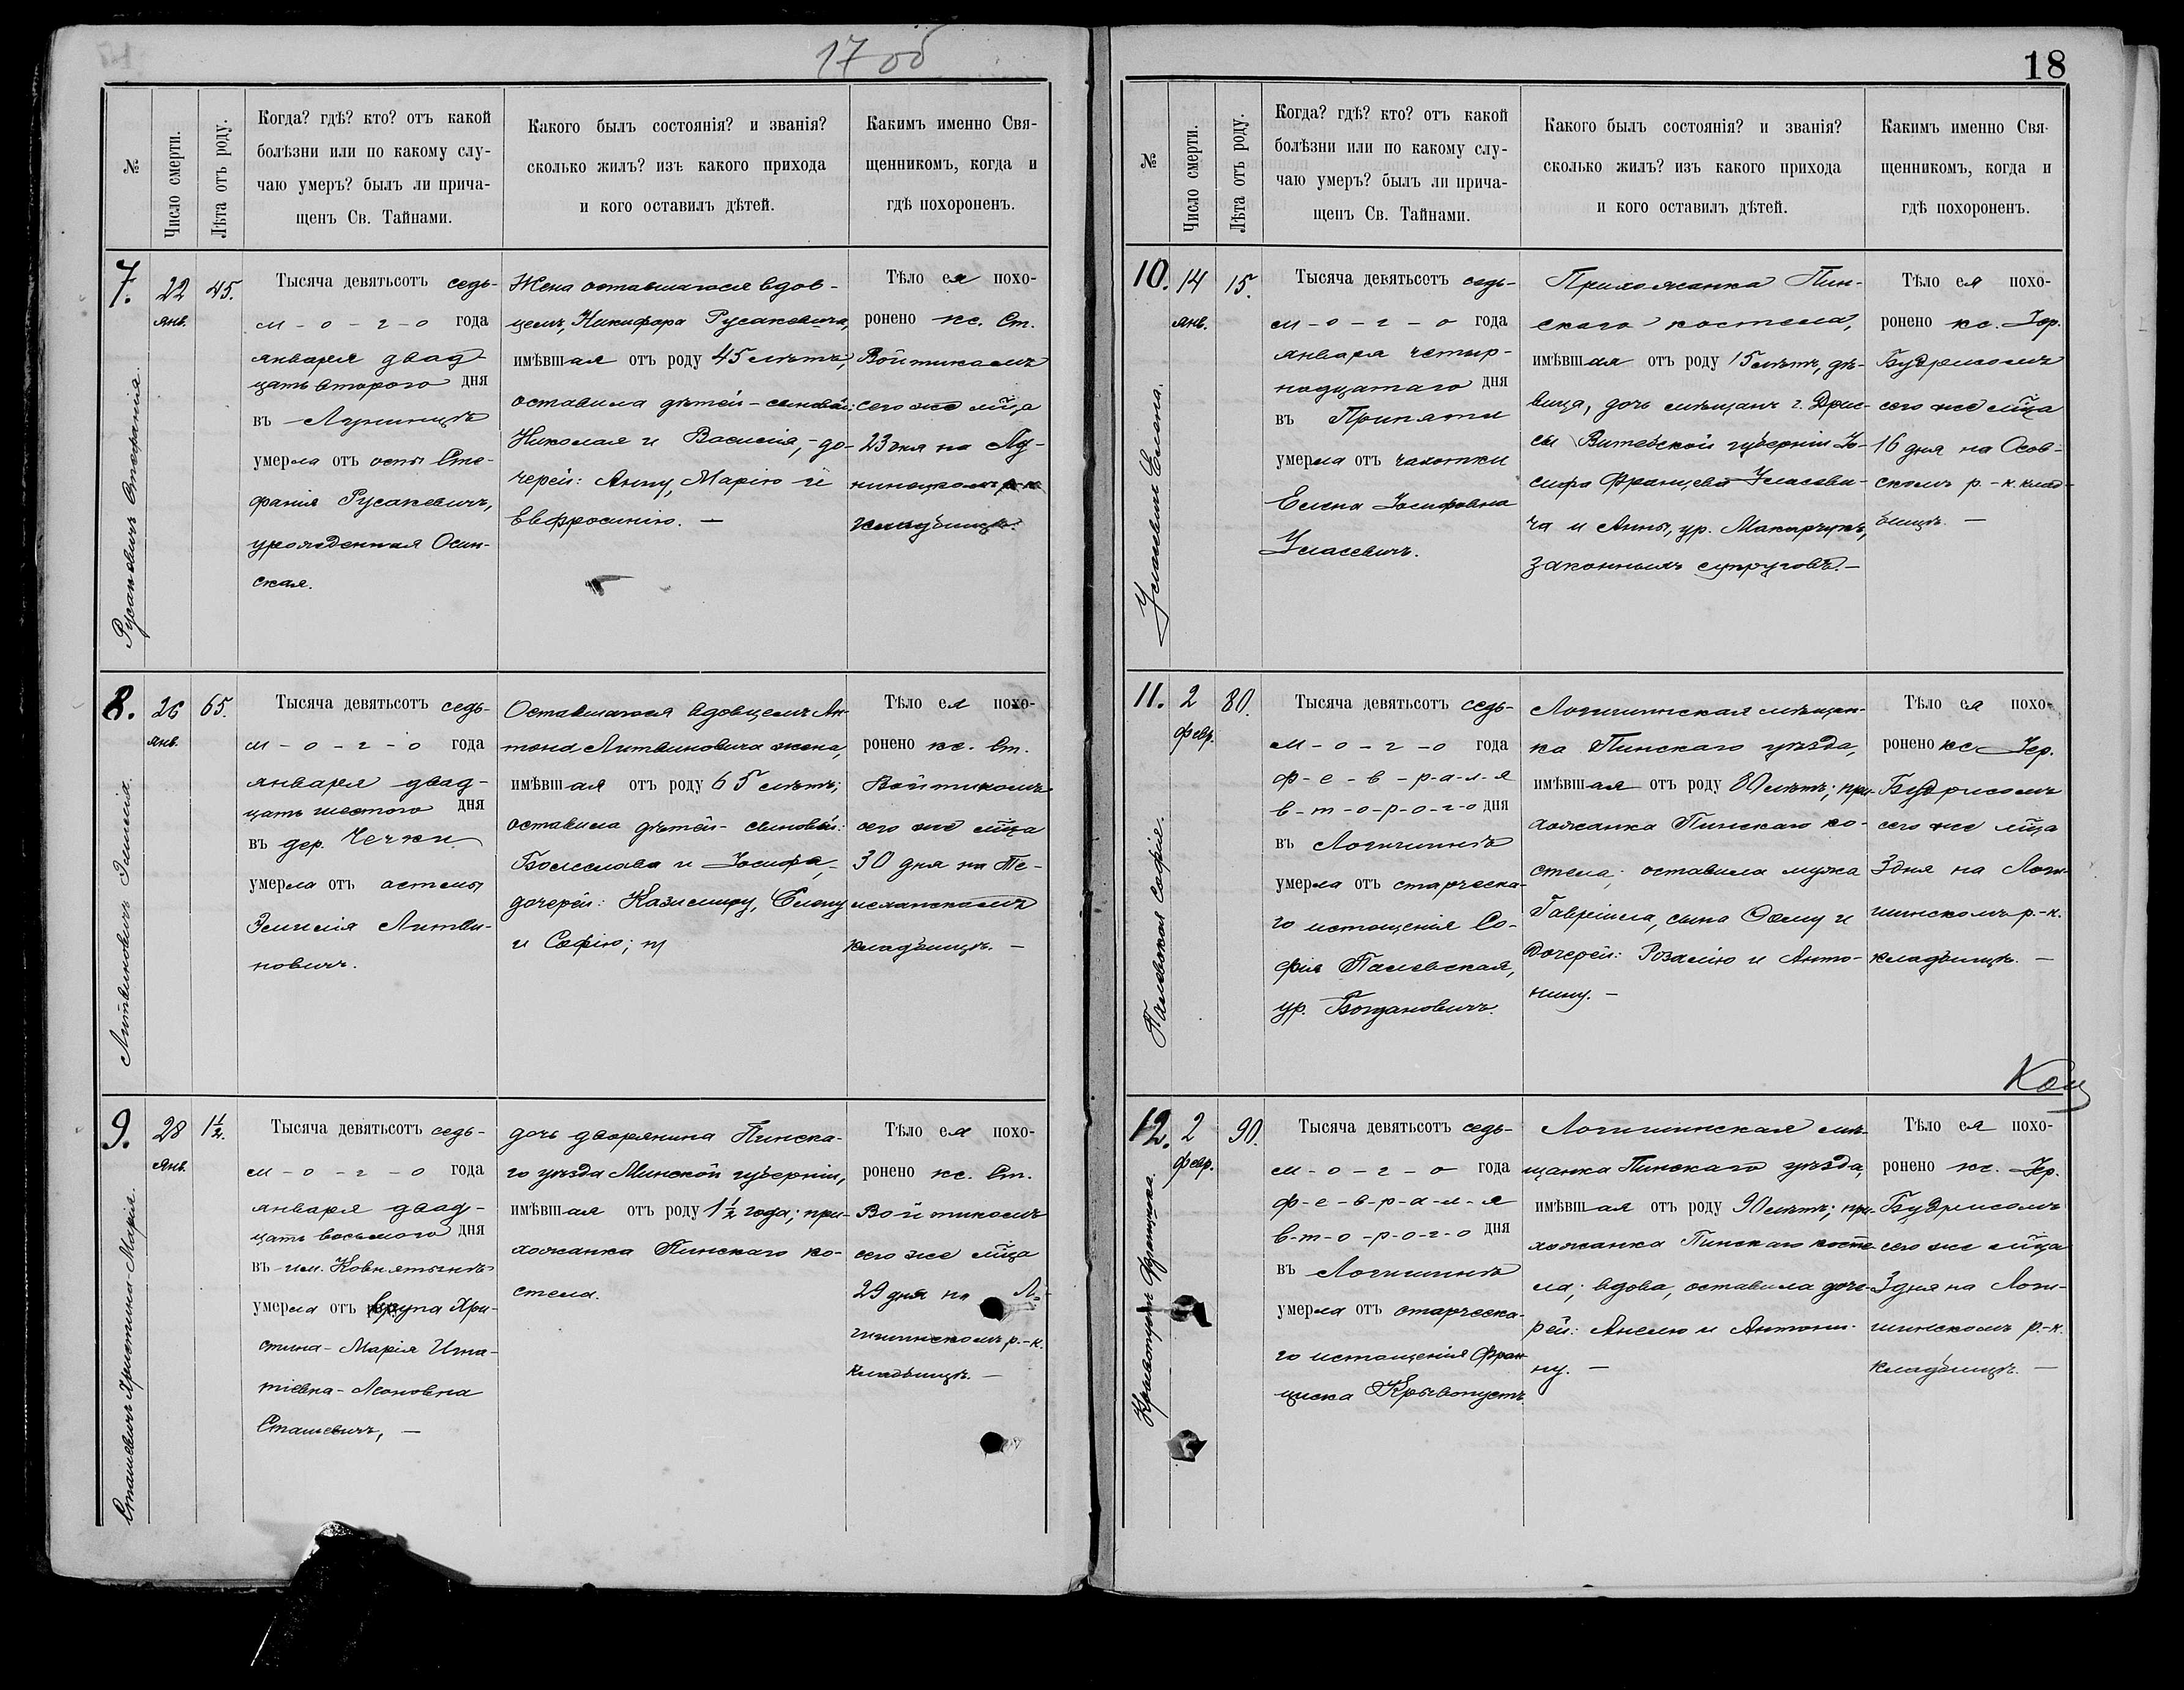 17 об
№
Число смерти.
Лѣта отъ роду.
Когда? гдѣ? кто? отъ какой
болѣзни или по какому слу-
чаю умеръ? былъ ли прича-
щенъ Св. Тайнами.
Какого былъ состоянія? и званія?
сколько жилъ? изъ какого прихода
и кого оставилъ дѣтей.
Какимъ именно Свя-
щенникомъ, когда и
гдѣ похороненъ.
7.
Русакевичъ Стефанія.
22
янв.
45.
Тысяча девятьсотъ седь-
м - о - г - о года
января двад-
цать второго дня
въ Лунинцѣ
умерла отъ оспы Сте-
фанія Русакевичъ,
урожденная Осин-
ская.
Жена оставшагося вдов-
цемъ, Никифора Русакевича,
имѣвшая отъ роду 45 лѣтъ,
оставила дѣтей - сыновей:
Николая и Василія, - до-
черей: Анну, Марію и
Евфросинію. —
Тѣло ея похо-
ронено кс. Ст.
Войтикомъ
сего же м-ца
23 дня на Лу-
нинецкомъ р-к
кладбищѣ.
8.
Литвиновичъ Эмилія.
26
янв.
65.
Тысяча девятьсотъ седь-
м - о - г - о года
января двад-
цать шестого дня
въ дер. Чечки
умерла отъ астмы
Эмилія Литви-
новичъ.
Оставшагося вдовцемъ Ан-
тона Литвиновича жена,
имѣвшая отъ роду 65 лѣтъ;
оставила дѣтей - сыновей:
Болеслава и Іосифа, -
дочерей: Казимиру, Елену
и Софію;
Тѣло ея похо-
ронено кс. Ст.
Войтикомъ
сего же м-ца
30 дня на Те-
леханскомъ
кладбищѣ. —
9.
Сташевичъ Христина-Марія.
28
янв.
1½.
Тысяча девятьсотъ седь-
м - о - г - о года
января двад-
цать восьмого дня
въ им. Ковнятынѣ
умерла отъ крупа Хри-
стина - Марія Игна-
тіевна - Леоновна
Сташевичъ, —
дочь дворянина Пинска-
го уѣзда Минской губерніи,
имѣвшая отъ роду 1½ года; при-
хожанка Пинскаго ко-
стела.
Тѣло ея похо-
ронено кс. Ст.
Войтикомъ
сего же м-ца
29 дня на Ло-
гишинскомъ р.-к.
кладбищѣ. —
18
№
Число смерти.
Лѣта отъ роду.
Когда? гдѣ? кто? отъ какой
болѣзни или по какому слу-
чаю умеръ? былъ ли прича-
щенъ Св. Тайнами.
Какого былъ состоянія? и званія?
сколько жилъ? изъ какого прихода
и кого оставилъ дѣтей.
Какимъ именно Свя-
щенникомъ, когда и
гдѣ похороненъ.
10.
Уласевичъ Елена.
14
янв.
15.
Тысяча девятьсотъ седь-
м - о - г - о года
января четыр-
надцатаго дня
въ Припяти
умерла отъ чахотки
Елена Іосифовна
Уласевичъ.
Прихожанка Пин-
скаго костела,
имѣвшая отъ роду 15 лѣтъ, дѣ-
вица, дочь мѣщанъ г. Дрис-
сы Витебской губерніи Іо-
сифа Францева Уласеви-
ча и Анны, ур. Макарчукъ,
законныхъ супруговъ. —
Тѣло ея похо-
ронено кс. Іер.
Будрисомъ
сего же м-ца
16 дня на Осов-
скомъ р.-к. клад-
бищѣ. —
11.
Палевская Софія.
2
февр.
80.
Тысяча девятьсотъ седь-
м - о - г - о года
ф - е - в - р - а - л - я
в - т - о - р - о - г - о дня
въ Логишинѣ
умерла отъ старческа-
го истощенія Со-
фія Палевская,
ур. Богдановичъ.
Логишинская мѣщан-
ка Пинскаго уѣзда,
имѣвшая отъ роду 80 лѣтъ; при-
хожанка Пинскаго ко-
стела; оставила мужа
Гавріила, сына Ѳому и
дочерей: Розалію и Анто-
нину. —
Тѣло ея похо-
ронено кс. Іер.
Будрисомъ
сего же м-ца
3 дня на Логи-
шинскомъ р.-к.
кладбищѣ. —
12.
Кривопустъ Франциска.
2
февр.
90.
Тысяча девятьсотъ седь-
м - о - г - о года
ф - е - в - р - а - л - я
в - т - о - р - о - г - о дня
въ Логишинѣ
умерла отъ старческа-
го истощенія Фран-
циска Кривопустъ.
Логишинская мѣ-
щанка Пинскаго уѣзда,
имѣвшая отъ роду 90 лѣтъ; при-
хожанка Пинскаго косте-
ла; вдова, оставила доче-
рей: Анелю и Антони-
ну. —
Тѣло ея похо-
ронено кс. Іер.
Будрисомъ
сего же м-ца
3 дня на Логи-
шинскомъ р.-к.
кладбищѣ. —